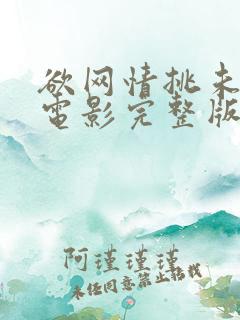 欲网情挑未
電影完整版
阿瑾瑾瑾
未经同意禁止转载